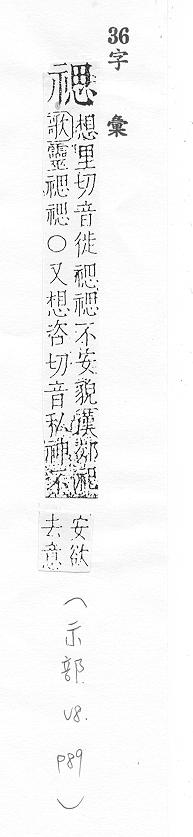 36
字彙
禗
想里切音徙禗禗不安貌漢郊祀
歌靈禗禗○又想咨切音私神不
安欲
去意
(示部 v8. p89)